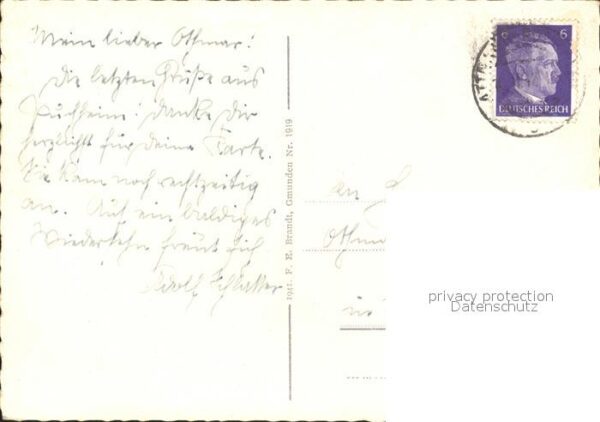 Mein lieber Othmar!
Die letzten Grüße aus
Puchheim. Danke dir
herzlichst für deine Karte.
Sie kam noch rechtzeitig
an. Auf ein baldiges
Wiedersehn freut sich
Adolf
1941. F. E. Brandt, Gmunden Nr. 1919
6
DEUTSCHES REICH
An
in
privacy protection
Datenschutz